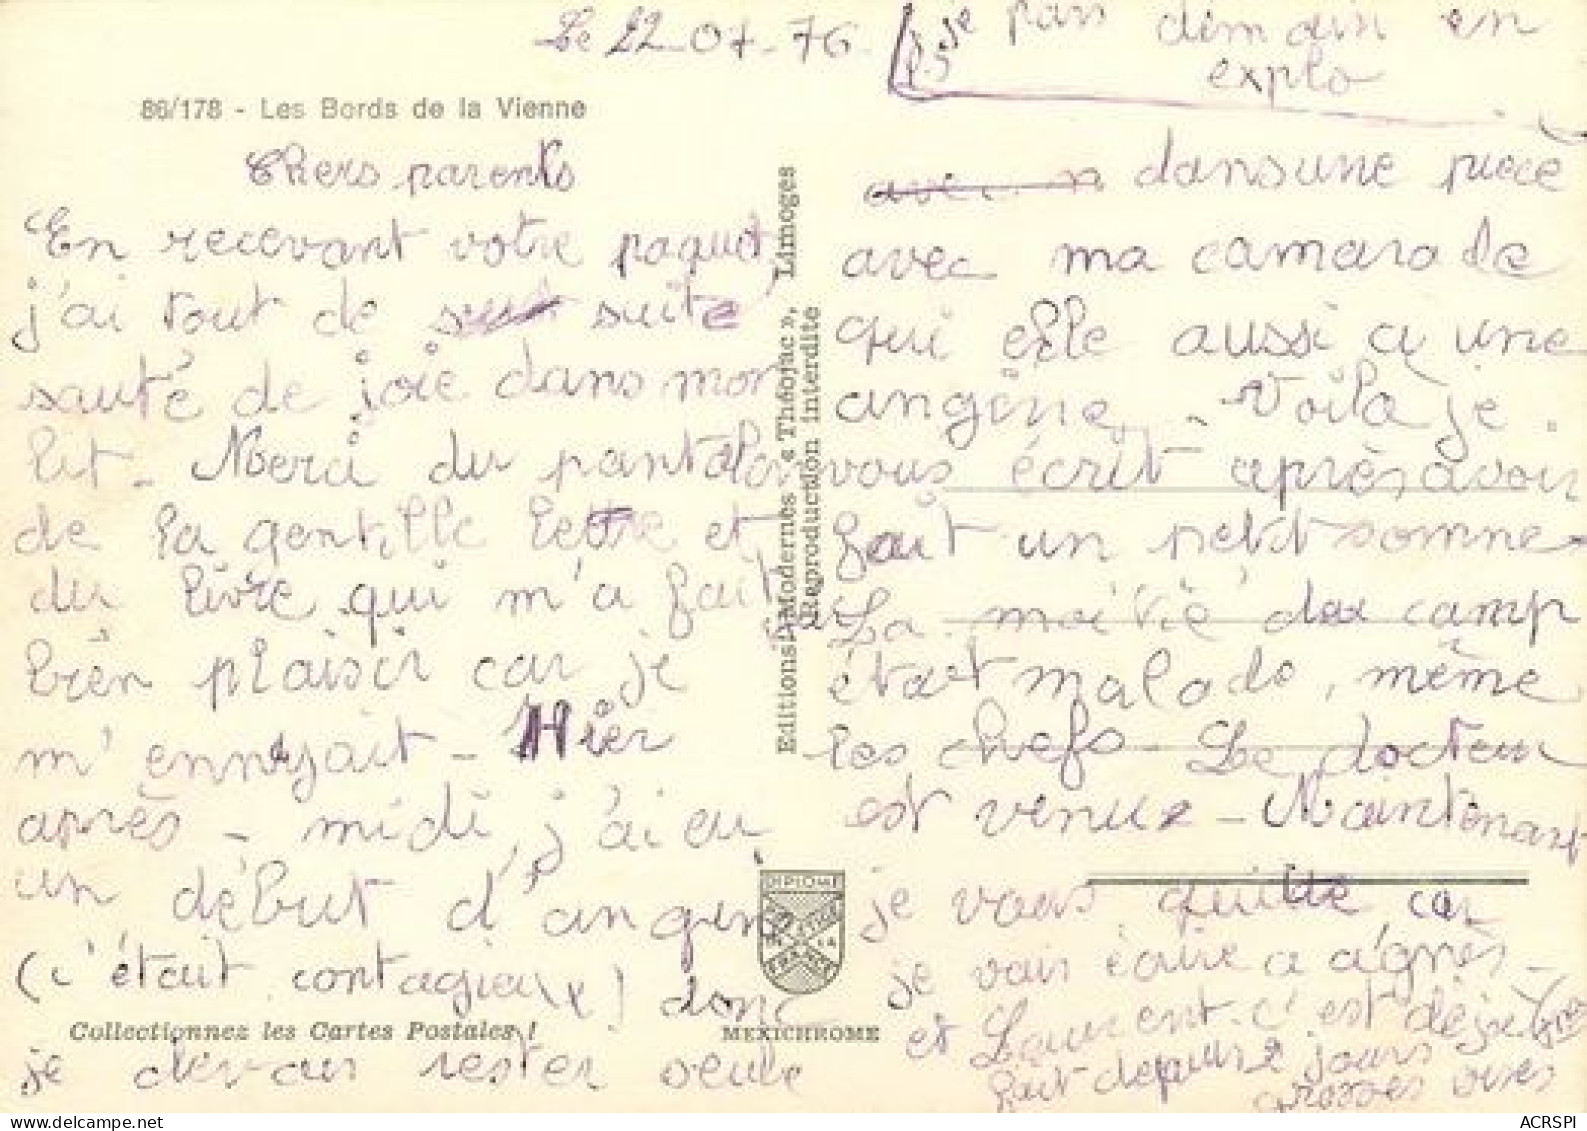 Le 22-07-76
P.S je pars demain en
explo
86/178 - Les Bords de la Vienne
Chers parents
En recevant votre paquet,
j'ai tout de suite
sauté de joie dans mon
lit. Merci du pantalon
de la gentille lettre et
du livre qui m'a fait
bien plaisir car je
m'ennuyait - Hier
après-midi, j'ai eu
un début d'angine
(c'était contagieux) donc
je devais rester seule
Collectionnez les Cartes Postales !
Editions Modernes « Théojac », Limoges
Reproduction interdite
DIPLOME
PRESTIGE
DE LA
FRANCE
MEXICHROME
avec dans une pièce
avec ma camarade
qui elle aussi a une
angine - Voila je
vous écrit après avoir
fait un petit somme -
La moitié du camp
était malade, même
les chefs - Le docteur
est venue - Maintenant
je vous quitte car
je vais écrire a agnès
et Laurent. c'est déja
fait depuis 2 jours
grosses bises
ACRSPI